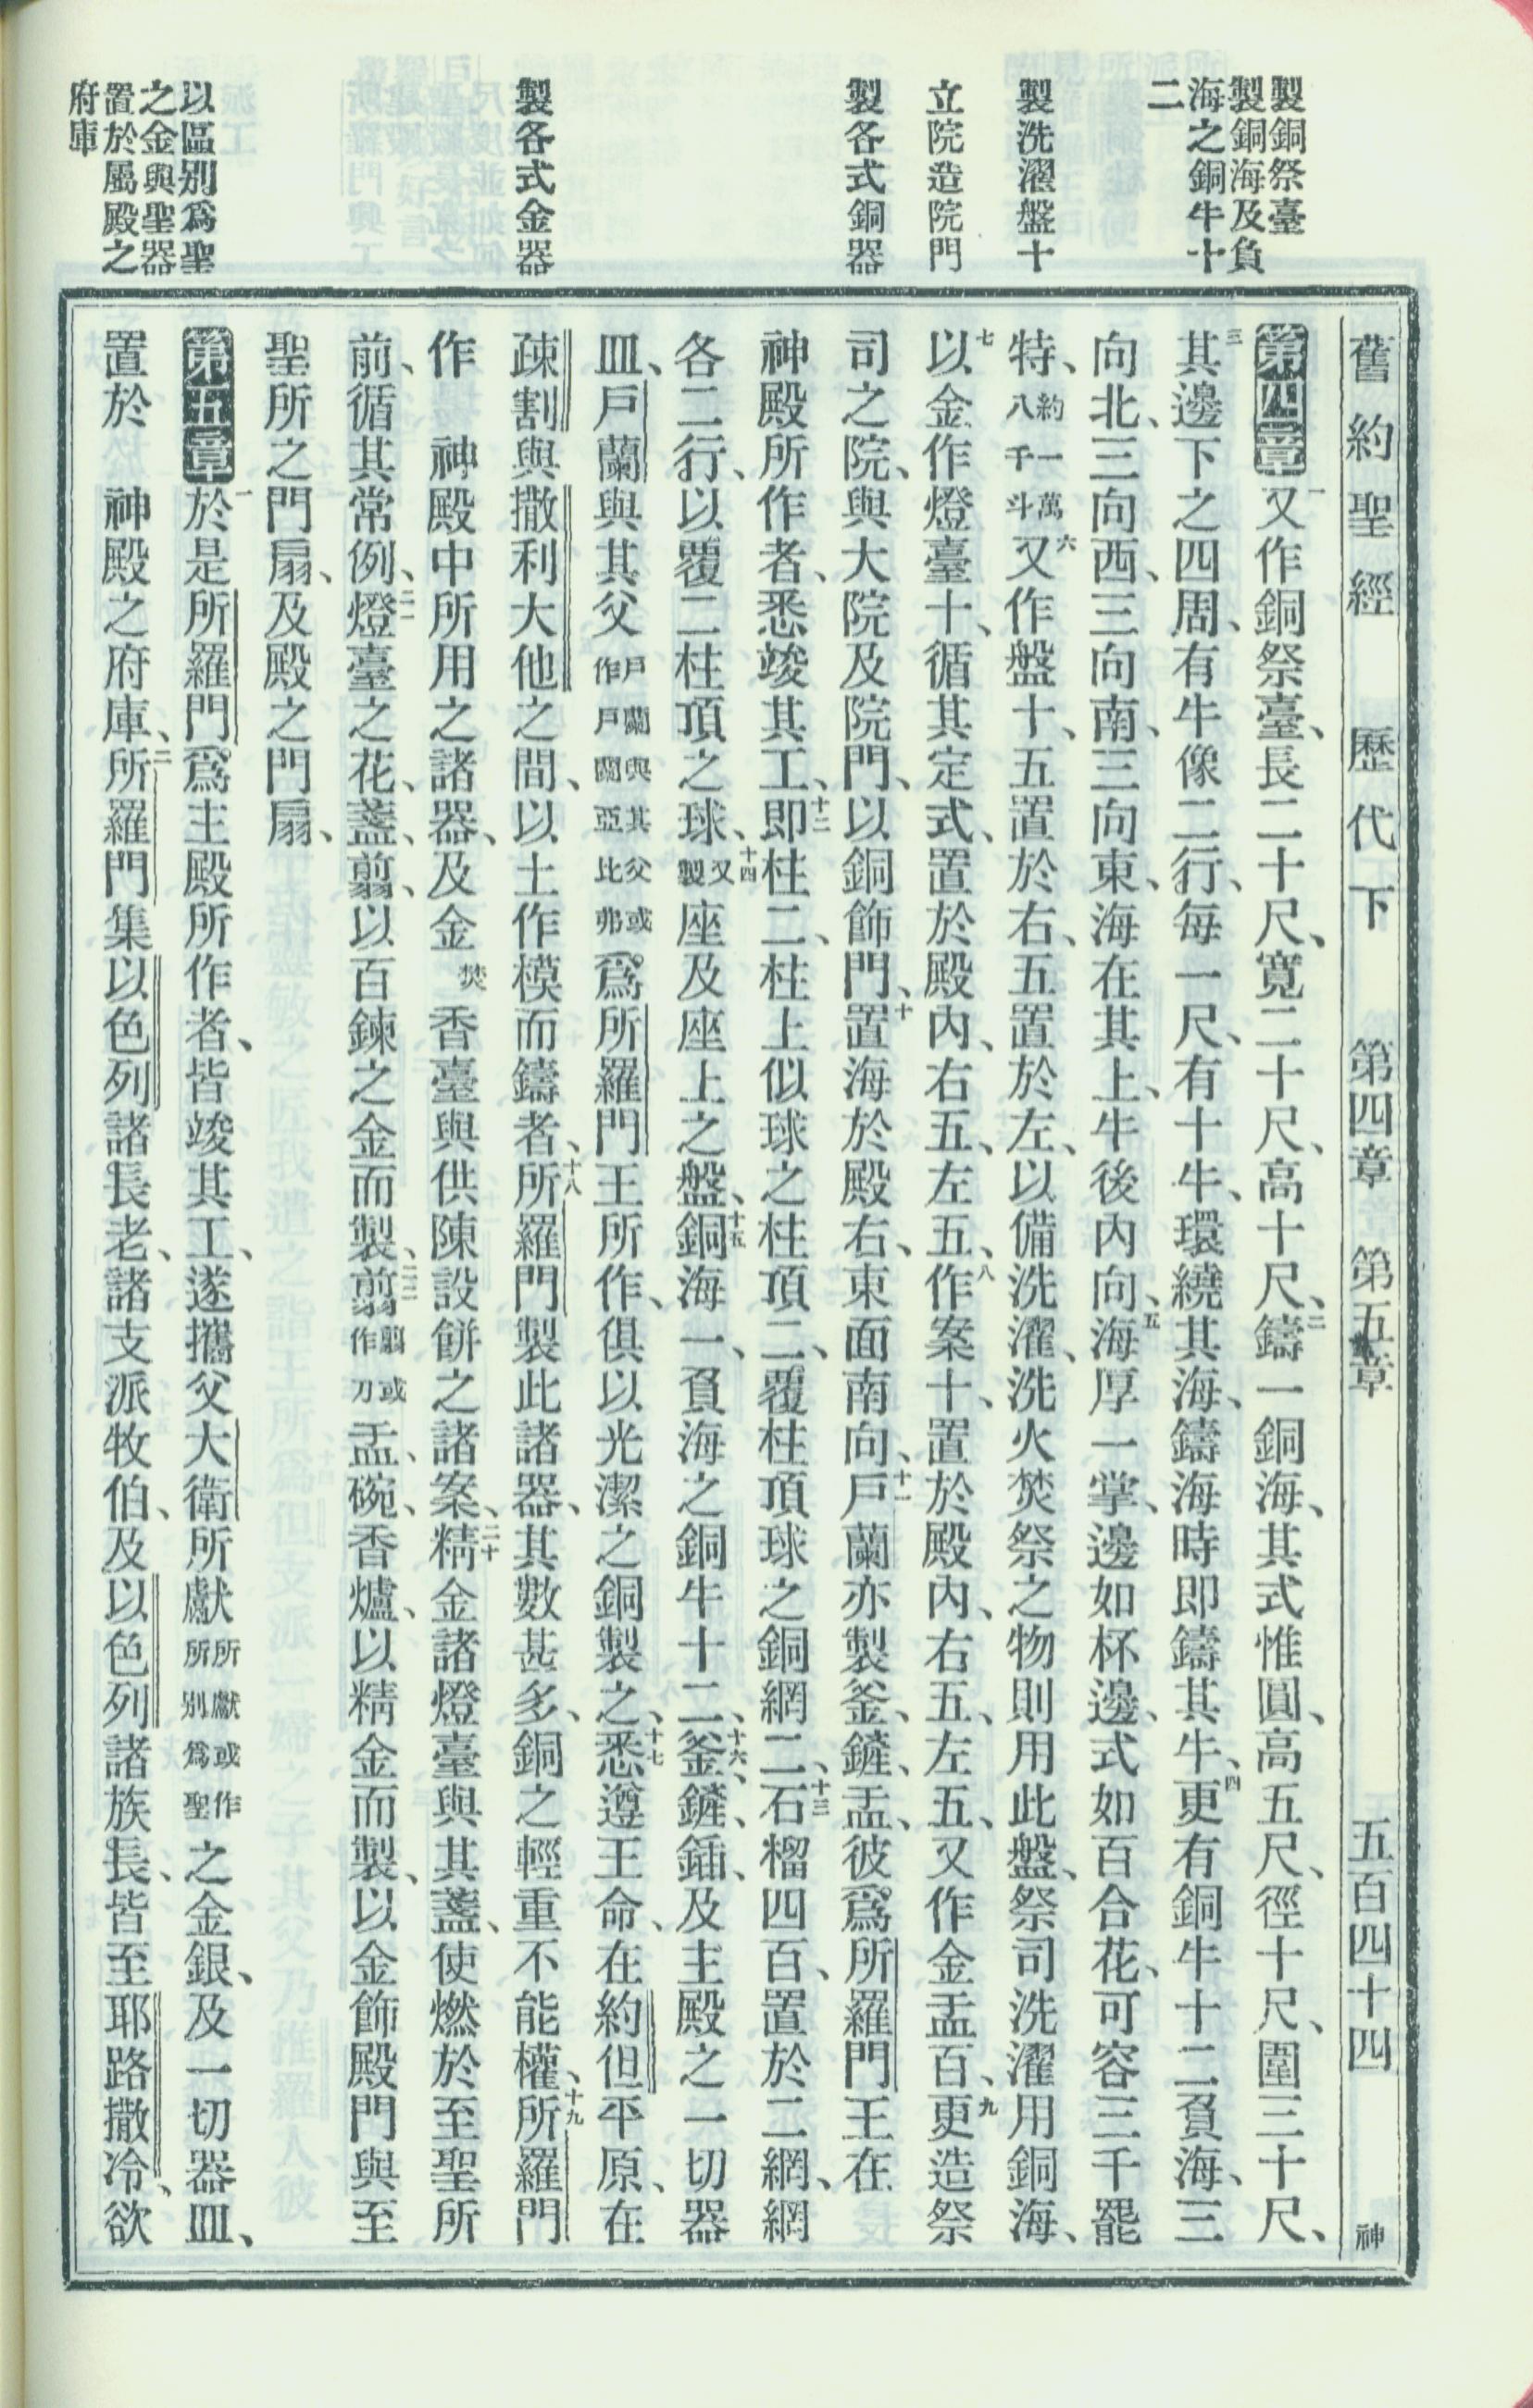 製銅祭臺
製銅海及負
海之銅牛十
二
製洗濯盤十
立院造院門
製各式銅器
製各式金器
以區別爲聖
之金與聖器
置於屬殿之
府庫
舊約聖經 歷代下 第四章 第五章 五百四十四 神
第四章 一又作銅祭臺、長二十尺、寬二十尺、高十尺、二鑄一銅海、其式惟圓、高五尺、徑十尺、圍三十尺、
三其邊下之四周、有牛像二行、每一尺、有十牛、環繞其海、鑄海時即鑄其牛、四更有銅牛十二負海、三
向北、三向西、三向南、三向東、海在其上、牛後內向、五海厚一掌、邊如杯邊、式如百合花、可容三千罷
特、約一萬八千斗六又作盤十、五置於右、五置於左、以備洗濯、洗火焚祭之物則用此盤、祭司洗濯用銅海、
七以金作燈臺十、循其定式、置於殿內、右五、左五、八作案十、置於殿內、右五、左五、又作金盂百、九更造祭
司之院、與大院及院門、以銅飾門、十置海於殿右、東面南向、十一戶蘭亦製釜、鏟、盂、彼爲所羅門王在
神殿所作者、悉竣其工、十二即柱二、柱上似球之柱頂二、覆柱頂球之銅網二、十三石榴四百、置於二網、網
各二行、以覆二柱頂之球、十四又製座及座上之盤、十五銅海一、負海之銅牛十二、十六釜、鏟、鍤、及主殿之一切器
皿、戶蘭與其父戶蘭與其父或作戶蘭亞比弗爲所羅門王所作、俱以光潔之銅製之、十七悉遵王命、在約但平原、在
疎割與撒利大他之間、以土作模而鑄者、十八所羅門製此諸器、其數甚多、銅之輕重不能權、十九所羅門
作 神殿中所用之諸器、及金焚香臺與供陳設餅之諸案、二十精金諸燈臺與其盞、使燃於至聖所
前、循其常例、二一燈臺之花、盞、翦、以百鍊之金而製、二二翦翦或作刀盂、碗、香爐、以精金而製、以金飾殿門與至
聖所之門扇、及殿之門扇、
第五章 一於是所羅門爲主殿所作者、皆竣其工、遂攜父大衛所獻所獻或作所別爲聖之金銀、及一切器皿、
置於 神殿之府庫、二所羅門集以色列諸長老、諸支派牧伯、及以色列諸族長、皆至耶路撒冷、欲